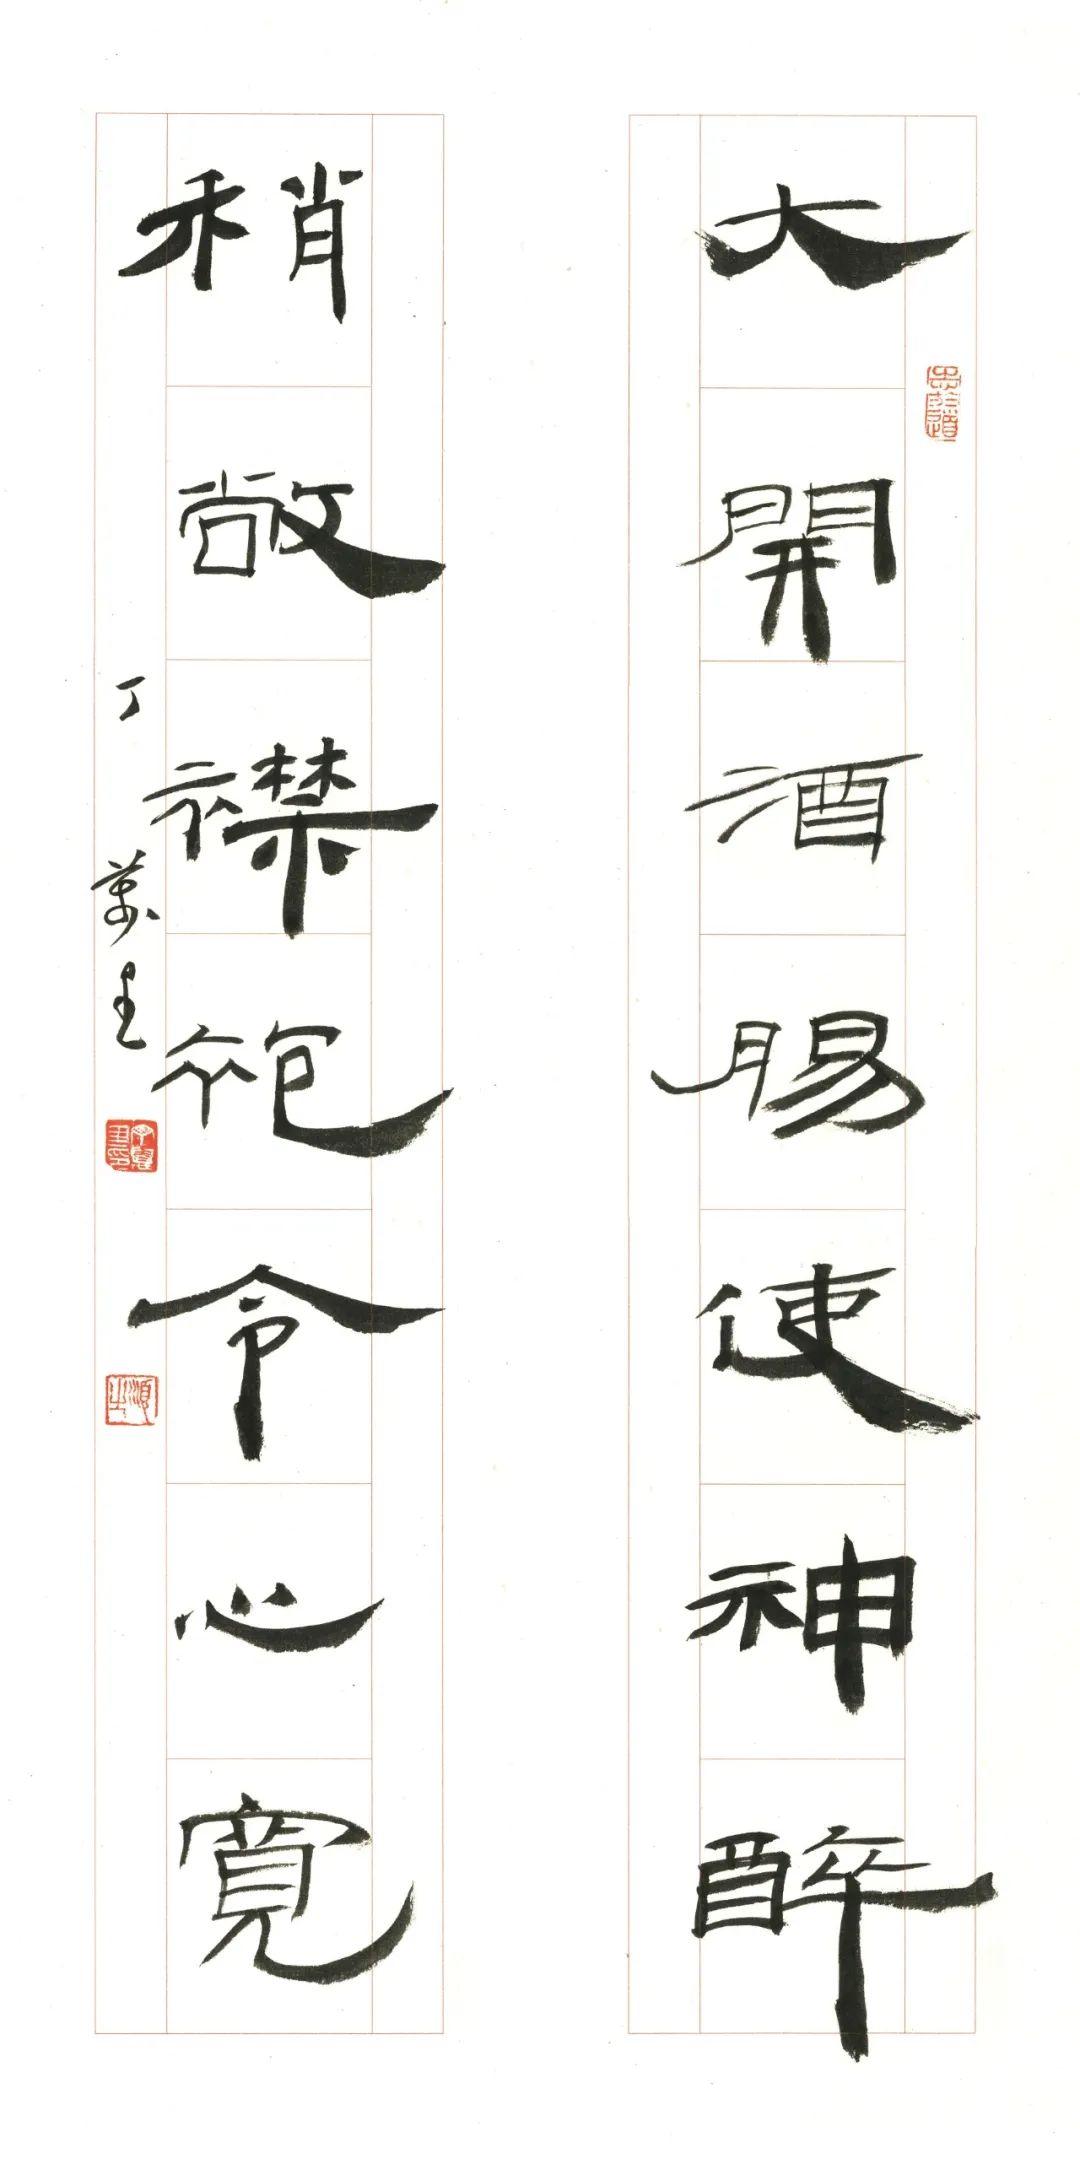 大開酒腸使神醉
稍敞襟袍令心寬
丁萬里